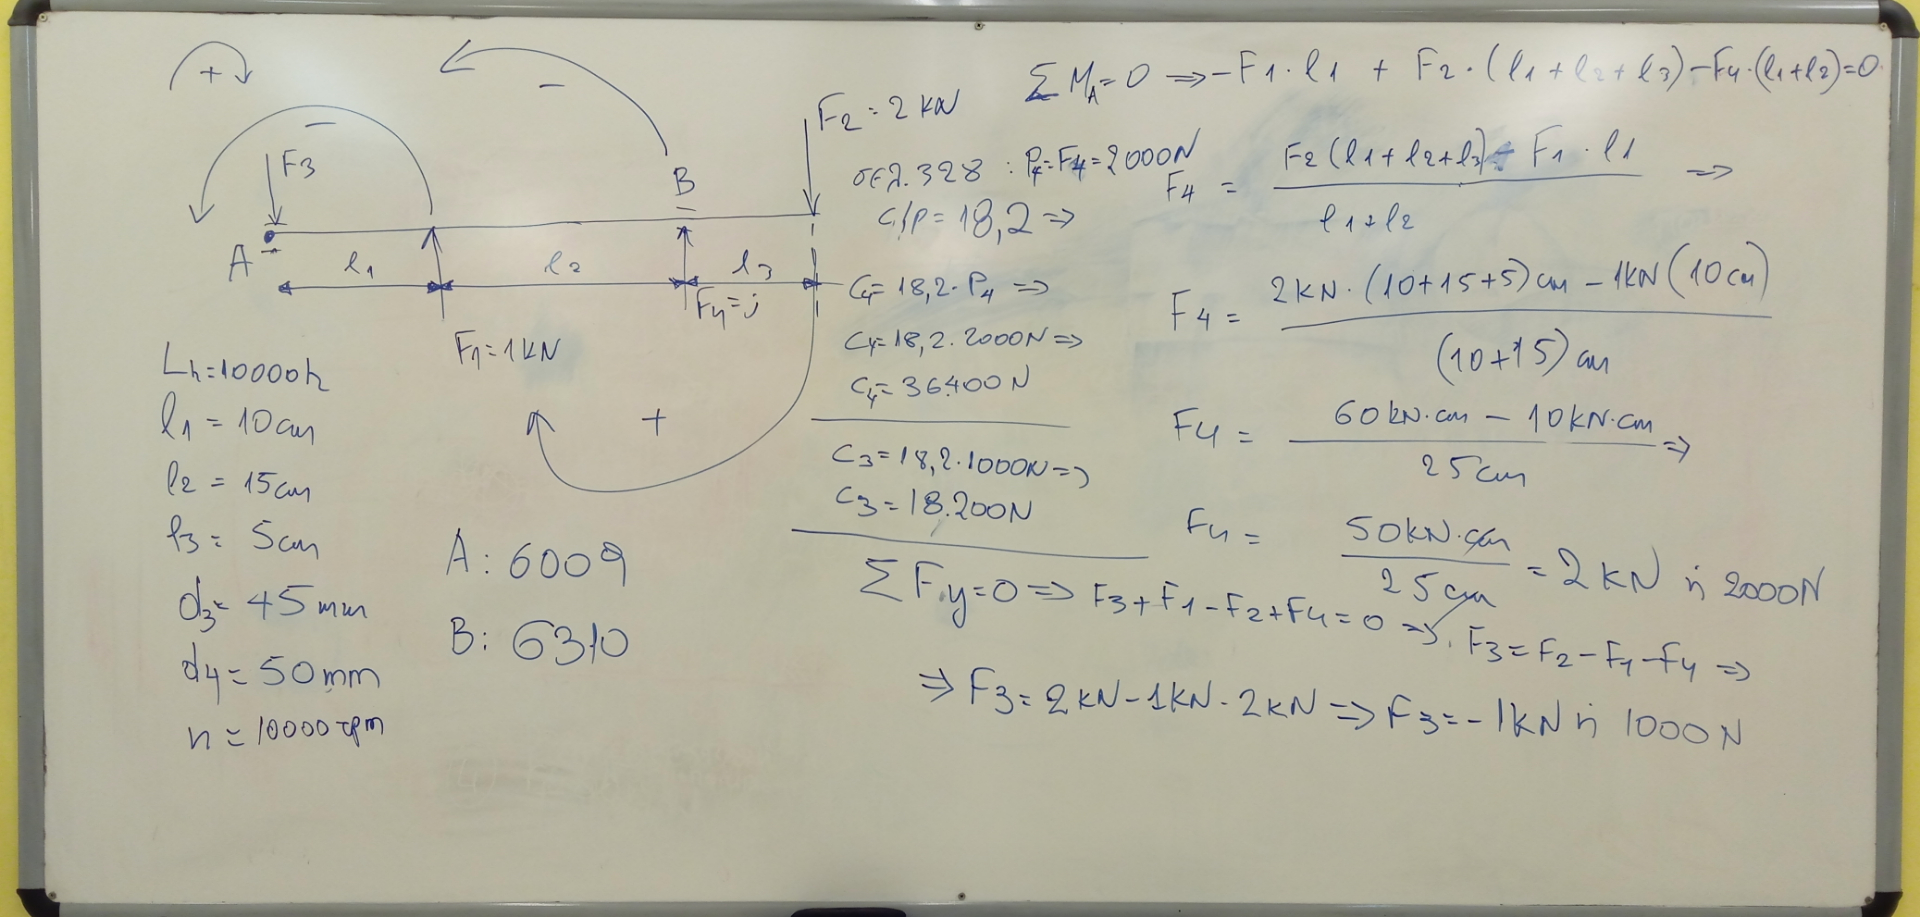 +
-
-
F3
F2 = 2 KN
B
A
l1
l2
l3
F4 = ;
F1 = 1 KN
+
Lh = 10000h
l1 = 10cm
l2 = 15cm
l3 = 5cm
d3 = 45mm
d4 = 50mm
n = 10000 rpm
A: 6009
B: 6310
σελ. 328 : P4 = F4 = 2000N
C/P = 18,2 ⇒
C4 = 18,2 · P4 ⇒
C4 = 18,2 · 2000N ⇒
C4 = 36.400 N
C3 = 18,2 · 1000N ⇒
C3 = 18.200N
ΣMA = 0 ⇒ -F1 · l1 + F2 · (l1 + l2 + l3) - F4 · (l1 + l2) = 0
F4 = F2 (l1 + l2 + l3) - F1 · l1 ⇒
l1 + l2
F4 = 2KN · (10+15+5) cm - 1KN (10 cm)
(10+15) cm
F4 = 60 kN·cm - 10KN·cm ⇒
25cm
F4 = 50KN·cm = 2 KN ή 2000N
25cm
ΣFy = 0 ⇒ F3 + F1 - F2 + F4 = 0 ⇒ F3 = F2 - F1 - F4 ⇒
⇒ F3 = 2 KN - 1KN - 2KN ⇒ F3 = -1KN ή 1000N